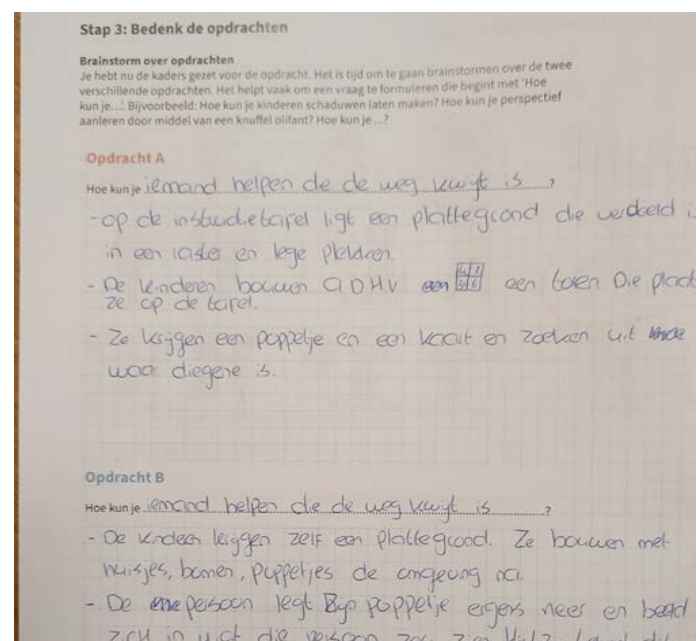 Stap 3: Bedenk de opdrachten
Brainstorm over opdrachten
Je hebt nu de kaders gezet voor de opdracht. Het is tijd om te gaan brainstormen over de twee
verschillende opdrachten. Het helpt vaak om een vraag te formuleren die begint met 'Hoe
kun je...'. Bijvoorbeeld: Hoe kun je kinderen schaduwen laten maken? Hoe kun je perspectief
aanleren door middel van een knuffel olifant? Hoe kun je ...?
Opdracht A
Hoe kun je iemand helpen de de weg kwijt is ......?
- op de instructietafel ligt een plattegrond die verdeeld i
in een raster en lege plekken.
- De kinderen bouwen a DHV een toren Die plaat
ze op de tafel.
- Ze krijgen een poppetje en een kaart en zoeken uit
waar diegene is.
Opdracht B
Hoe kun je iemand helpen die de weg kwijt is ............?
- De kinderen krijgen zelf een plattegrond. Ze bouwen met
huisjes, bomen, poppetjes de omgeving na.
- De ene persoon legt poppetje ergens neer en
zich in wat die persoon zou zien